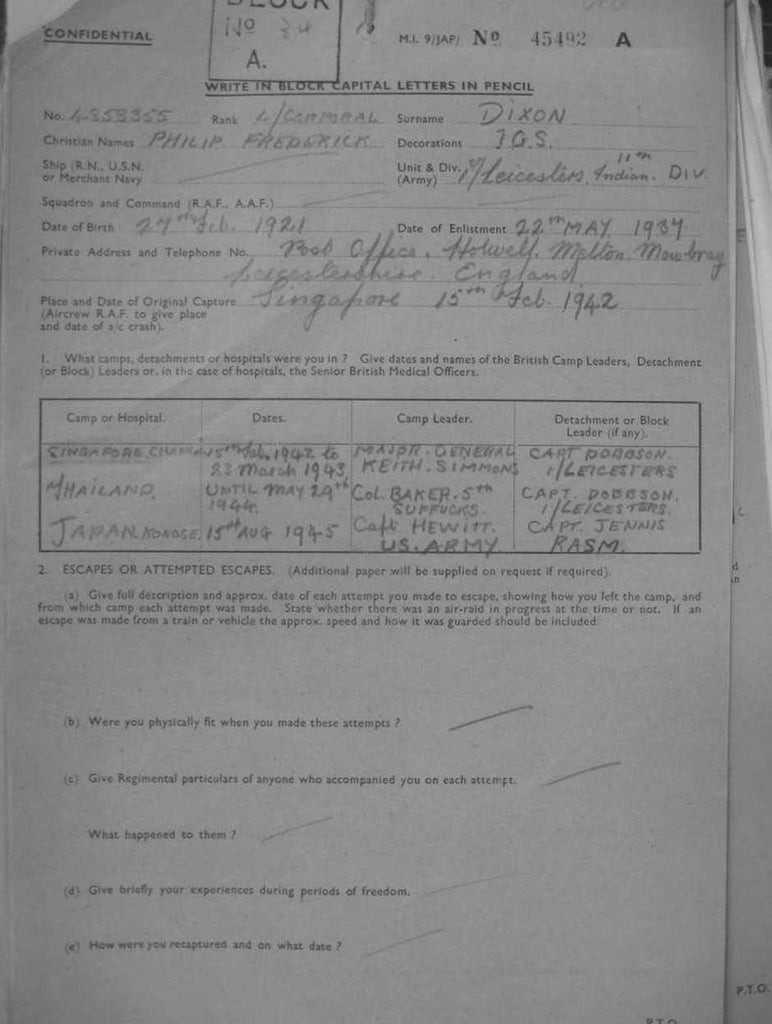 BLOCK
No 34
A.
CONFIDENTIAL
M.I. 9/JAP/ No 45492 A
WRITE IN BLOCK CAPITAL LETTERS IN PENCIL
No. 4853355 Rank L/CORPORAL Surname DIXON
Christian Names PHILIP FREDERICK Decorations I.G.S.
Ship (R.N., U.S.N. or Merchant Navy
Unit & Div. (Army) 1/Leicesters, 11th Indian. DIV.
Squadron and Command (R.A.F., A.A.F.)
Date of Birth 27th Feb. 1921 Date of Enlistment 22th MAY 1937
Private Address and Telephone No. Post Office, Holwell, Melton Mowbray
Leicestershire. England
Place and Date of Original Capture Singapore 15th Feb. 1942
(Aircrew R.A.F. to give place
and date of a/c crash).
1. What camps, detachments or hospitals were you in ? Give dates and names of the British Camp Leaders, Detachment
(or Block) Leaders or, in the case of hospitals, the Senior British Medical Officers.
Camp or Hospital. Dates. Camp Leader. Detachment or Block Leader (if any).
SINGAPORE, CHANGI 15th Feb, 1942 to MAJOR. GENERAL CAPT DOBBSON.
23 March 1943, KEITH. SIMMONS 1/LEICESTERS
THAILAND. UNTIL MAY 29th Col. BAKER. 5th CAPT. DOBBSON.
1944. SUFFUCKS. 1/LEICESTERS.
JAPAN. 15th AUG 1945 Capt HEWITT. CAPT. JENNIS
US. ARMY RASM.
2. ESCAPES OR ATTEMPTED ESCAPES. (Additional paper will be supplied on request if required).
(a) Give full description and approx. date of each attempt you made to escape, showing how you left the camp, and
from which camp each attempt was made. State whether there was an air-raid in progress at the time or not. If an
escape was made from a train or vehicle the approx. speed and how it was guarded should be included.
(b) Were you physically fit when you made these attempts ?
(c) Give Regimental particulars of anyone who accompanied you on each attempt.
What happened to them ?
(d) Give briefly your experiences during periods of freedom.
(e) How were you recaptured and on what date ?
P.T.O.
P.T.O.